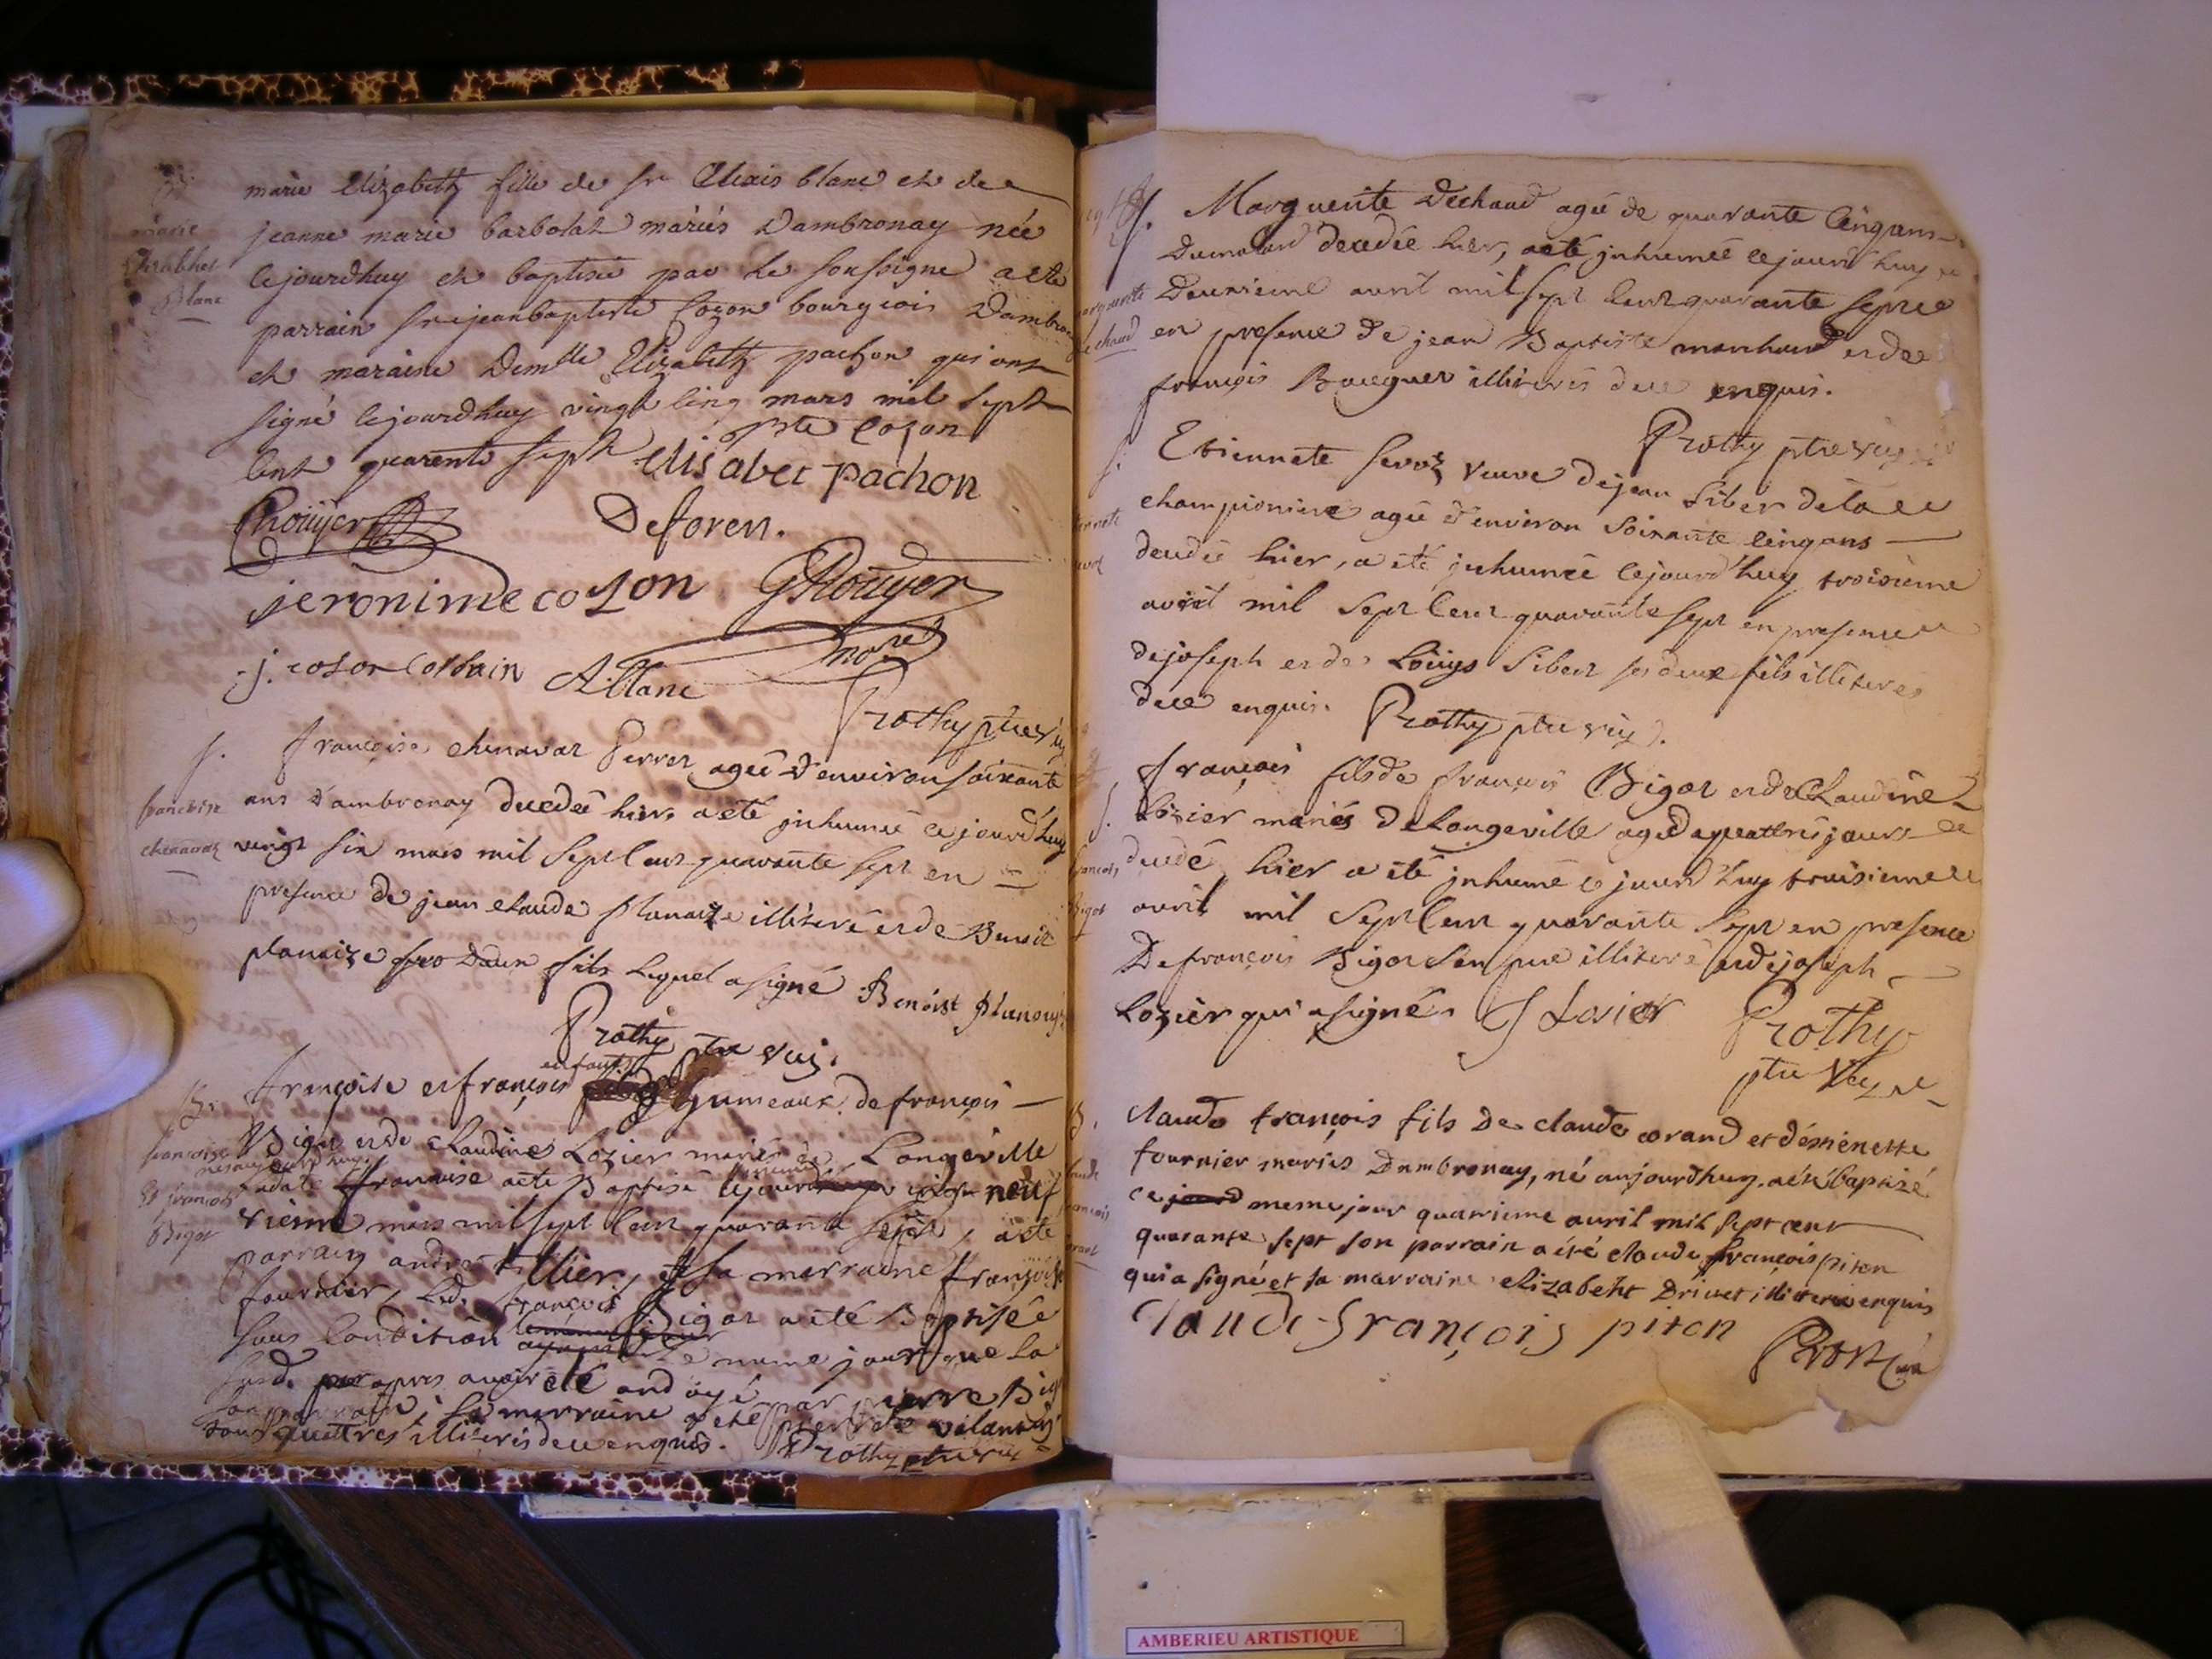 marie
Elizabhet
Blanc
marie Elizabeth fille de sr Alexis blanc et de
jeanne marie barbolat mariés Dambronay née
cejourdhuy et baptisée par le soussigné a esté
parrain sr jean baptiste Cozon bourgeois Dambronay
et maraine Demlle Elizabeth pachon qui ont
signé cejourdhuy vingt cinq mars mil sept
cent quarente sept
Cozon
Elisabet pachon
Rouyer
Deforen.
jeronime cozon
GRouyer
j. cozon Corbain
A Blanc
Prothy ptre vic
f.
francoise
chenavaz
françoise chenavaz Perret agée d'environ soixante
ans d'ambronay decedeé hier a eté inhumeé ce jourd'huy
vingt six mars mil sept cent quarante sept en
presence de jean claude planaize illiteré et de Benoit
planaize son fils lequel a signé Benoist planaize
Prothy ptre vic.
B.
francoise
et francois
Bigot
enfants
françoise et françois gumeaux de françois
Bigot et de Claudine Lozier mariés de Longeville
nés aujourdhuy
ladte francoise a eté Baptisé vingt neuf
vieme mars mil sept cent quarante sept, a eté
parrain andré tillier, et sa marraine françoise
fournier, led. françois Bigot a eté Baptisée
sous condition le meme jour que la
susd. apres avoir eté ondoyé par pierre Big
son parrain, sa marraine a eté pierrette vilan
tous quattres illiterés de ce enquis. Prothy ptre vic
f.
marguerite
dechaud
Marguerite Dechaud ageé de quarante cinq ans
Dumolard decedée hier, a eté inhumeé cejourd'huy
Deuxieme avril mil sept cent quarante sept
en presence de jean Baptiste manhaud et de
françois Bacquet illiterés de ce enquis.
Prothy ptre vic
f.
Etiennete Servoz veuve de jean Siber de la
championiere ageé d'environ soixante cinq ans
decedée hier, a eté inhumeé cejourd'huy troisieme
avril mil sept cent quarante sept en presence
de joseph et de Loüys Siber ses deux fils illiteres
de ce enquis. Prothy ptre vic.
f.
francois
Bigot
françois fils de françois Bigot et de Claudine
Lozier mariés de Longeville agé de quattres jours
decedé hier a eté inhumé ce jourd'huy troisieme
avril mil sept cent quarante sept en presence
De françois Bigot son pere illiteré et de joseph
Lozier qui a signé. J Losier
Prothy
ptre vic
B.
claude
francois
orand
claude françois fils de claude orand et d'estienette
fournier mariés Dambronay, né aujourdhuy. a été baptisé
ce jourd meme jour quatrieme avril mil sept cent
quarante sept son parrain a été claude françois piton
qui a signé et sa marraine elizabeht Drivet illiterée enquis
Claude françois piton